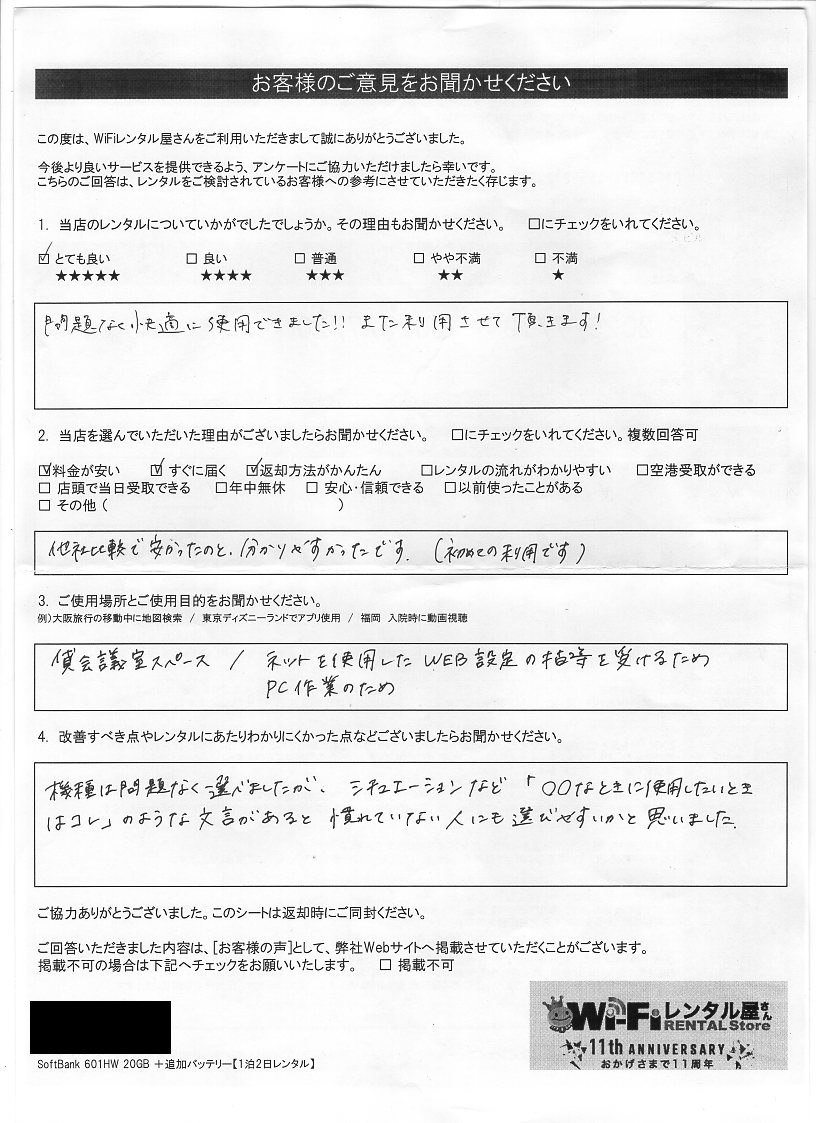 お客様のご意見をお聞かせください
この度は、WiFiレンタル屋さんをご利用いただきまして誠にありがとうございました。
今後より良いサービスを提供できるよう、アンケートにご協力いただけましたら幸いです。
こちらのご回答は、レンタルをご検討されているお客様への参考にさせていただきたく存じます。
1. 当店のレンタルについていかがでしたでしょうか。その理由もお聞かせください。 □にチェックをいれてください。
☑ とても良い □ 良い □ 普通 □ やや不満 □ 不満
★★★★★ ★★★★ ★★★ ★★ ★
問題なく快適に使用できました!! また利用させて頂きます!
2. 当店を選んでいただいた理由がございましたらお聞かせください。 □にチェックをいれてください。複数回答可
☑料金が安い ☑ すぐに届く ☑返却方法がかんたん □レンタルの流れがわかりやすい □空港受取ができる
□ 店頭で当日受取できる □年中無休 □ 安心・信頼できる □以前使ったことがある
□ その他 ( )
他社比較で安かったのと、分かりやすかったです。(初めての利用です)
3. ご使用場所とご使用目的をお聞かせください。
例)大阪旅行の移動中に地図検索 / 東京ディズニーランドでアプリ使用 / 福岡 入院時に動画視聴
貸会議室スペース / ネットを使用したWEB設定の指導を受けるため
PC作業のため
4. 改善すべき点やレンタルにあたりわかりにくかった点などございましたらお聞かせください。
機種は問題なく選べましたが、シチュエーションなど「〇〇なときに使用したいとき
はコレ」のような文言があると慣れていない人にも選びやすいかと思いました。
ご協力ありがとうございました。このシートは返却時にご同封ください。
ご回答いただきました内容は、[お客様の声]として、弊社Webサイトへ掲載させていただくことがございます。
掲載不可の場合は下記へチェックをお願いいたします。 □ 掲載不可
Wi-Fiレンタル屋さん
RENTAL Store
11th ANNIVERSARY
おかげさまで11周年
SoftBank 601HW 20GB +追加バッテリー【1泊2日レンタル】